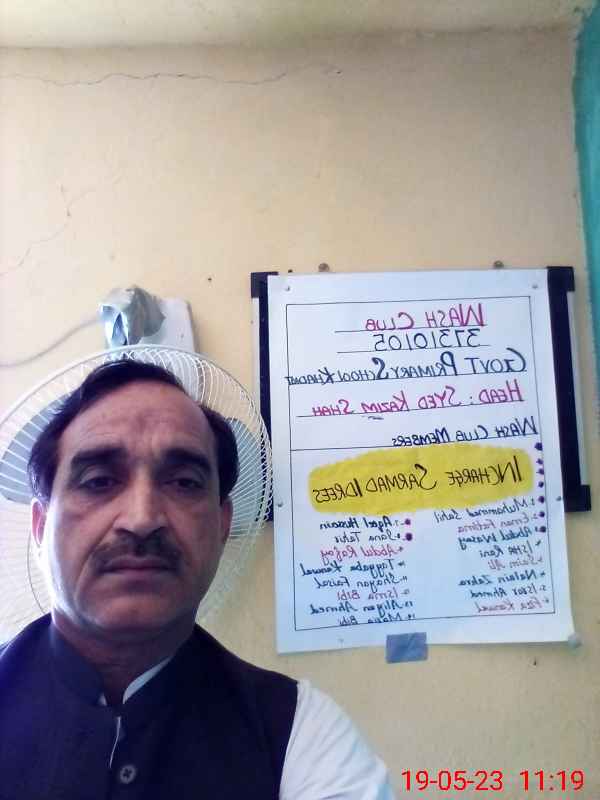 WASH CLUB
37310105
GOVT PRIMARY SCHOOL
HEAD: SYED KAZIM SHAH
WASH CLUB MEMBERS
INCHARGE SARMAD IDREES
Muhammad Sahil
Eman Fatima
Abdul Wasay
Isha Rani
Saim Ali
Nalain Zahra
Israr Ahmed
Fiza Kanwal
Hussain
Sana Tahir
Abdul Rafay
Tayyaba Kanwal
Shayan Faisal
Isma Bibi
Aliyan Ahmed
Bibi
19-05-23 11:19